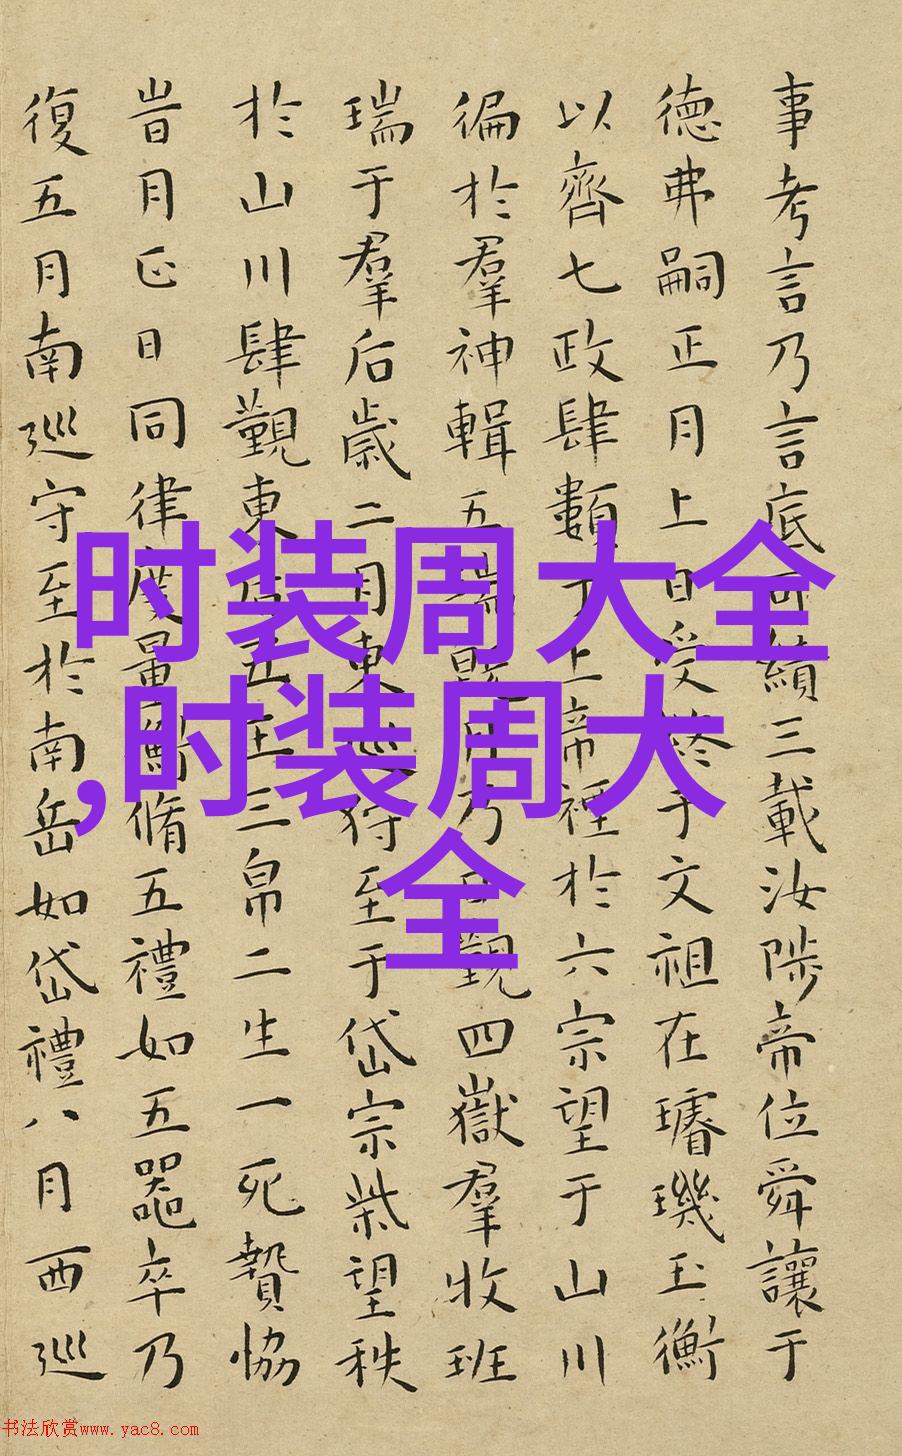 事考言乃言底可績三載汝陟帝位舜讓于
德弗嗣正月上日受終于文祖在璿璣玉衡
以齊七政肆類于上帝禋於六宗望于山川
徧於羣神輯五瑞既月乃日觀四嶽羣牧班
瑞于羣后歲二月東巡狩至于岱宗柴望秩
於山川肆覲東后五玉三帛二生一死贄協
旹月正日同律度量衡脩五禮如五器卒乃
復五月南巡守至於南岳如岱禮八月西巡
时装周大全
,时装周大
全
书法欣赏www.yac8.com